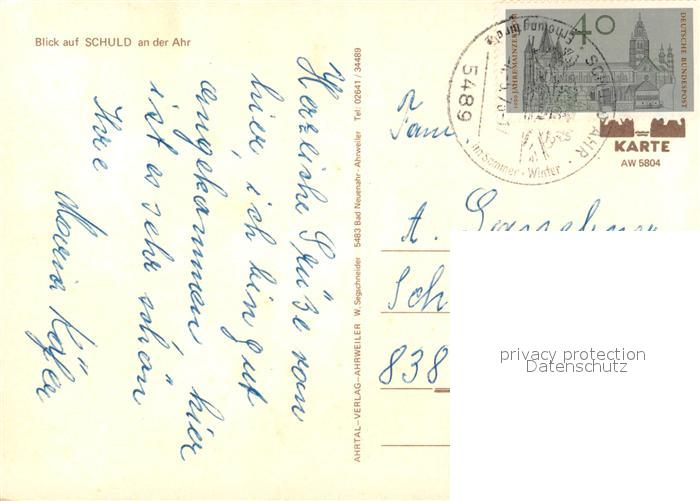 Blick auf SCHULD an der Ahr
Herzliche Grüße von
hier, ich bin gut
angekommen, hier
ist es sehr schön
Ihre
Maria
AHRTAL-VERLAG-AHRWEILER W. Segschneider 5483 Bad Neuenahr - Ahrweiler Tel: 02641 / 34489
5489
Im Sommer · Winter
40
DEUTSCHE BUNDESPOST
KARTE
AW 5804
Fam
A.
Sch
838
privacy protection
Datenschutz